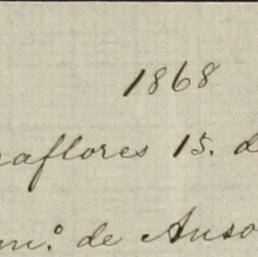 1868
raflores 15. d
m.º de Anso